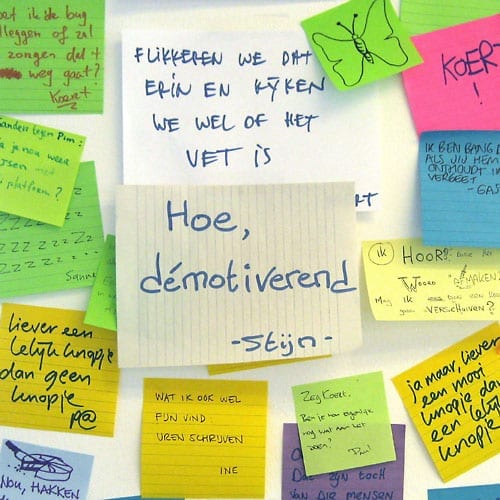 oet ik de bug
leggen of zal
zongen dat
weg gaat?
Koert
FLIKKEREN WE DAT
ERIN EN KIJKEN
WE WEL OF HET
VET IS
RT
KOERT
!
IK BEN BANG D
ALS JIJ HEM
ONTHOUDT IK
VERGEET
- GAS
Sander tegen Pim:
je nou weer
platform?
zzzzzzz
zzzzzz
Sanne
Hoe,
démotiverend
- Stijn -
ik HOOR:
Woord "GEMAKEN"
Mag ik
gaan VERSCHUIVEN?
liever een
lelijk knopje
dan geen
knopje
p@
WAT IK OOK WEL
FIJN VIND:
UREN SCHRIJVEN
INE
Zeg Koert,
Ben je nou eigenlijk
nog wat aan het
doen?
Dat zijn toch
van die mensen
ja maar, liever
een mooi
knopje dan
een lelijk
knopje
NOU, HAKKEN